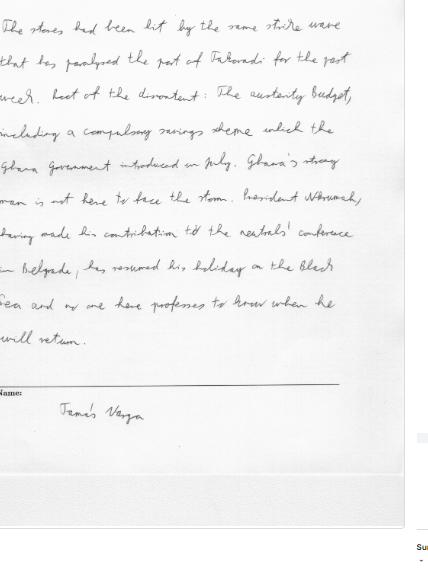 The stores had been hit by the same strike wave
that has paralysed the port of Takoradi for the past
week. Root of the discontent: The austerity Budget,
including a compulsory savings scheme which the
Ghana Government introduced in July. Ghana's strong
man is not here to face the storm. President Nkrumah,
having made his contribution to the neutrals' conference
in Belgrade, has resumed his holiday on the Black
Sea and no one here professes to know when he
will return.
Name:
Tamás Varga
Su